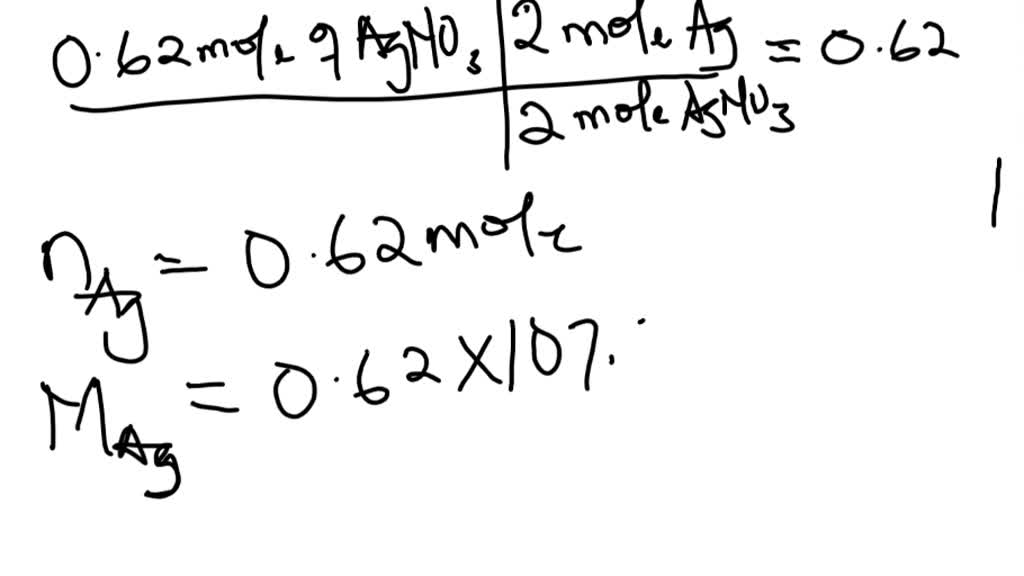 0.62 mole of AgNO3 | 2 mole Ag = 0.62
2 mole AgNO3
nAg = 0.62 mole
MAg = 0.62 X 107.